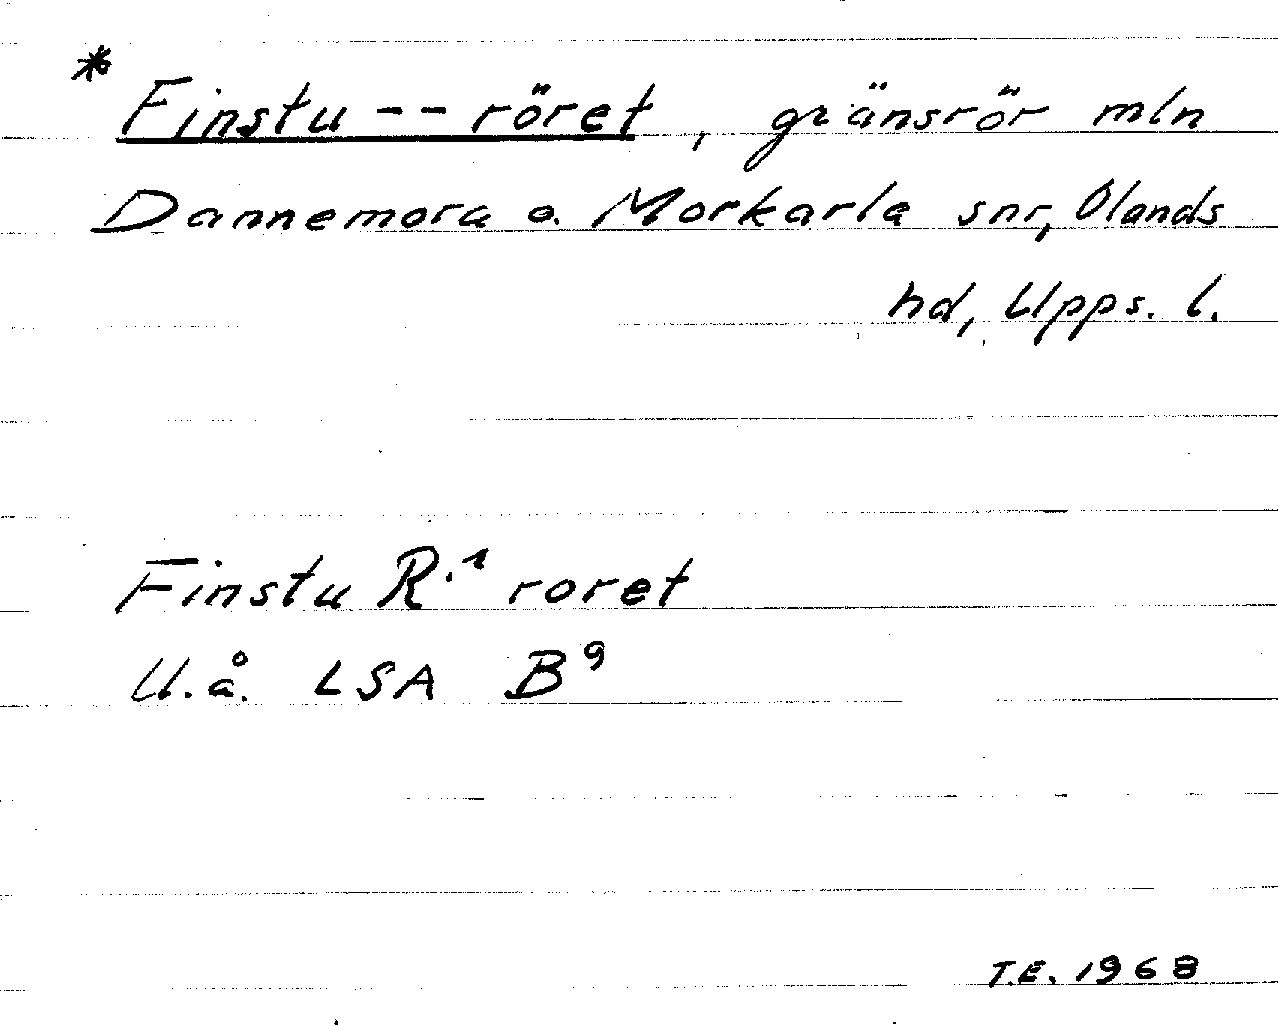 *
Finstu -- röret, gränsrör mln
Dannemora o. Morkarla snr, Olands
hd, Upps. l.
Finstu R.¹ roret
U.å. LSA B⁹
T.E. 1968